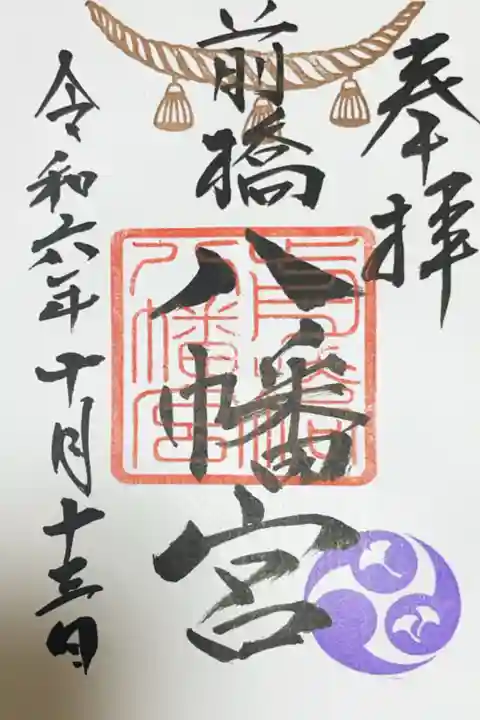 奉拝
前橋
八幡宮
前橋八幡宮
令和六年十月十三日